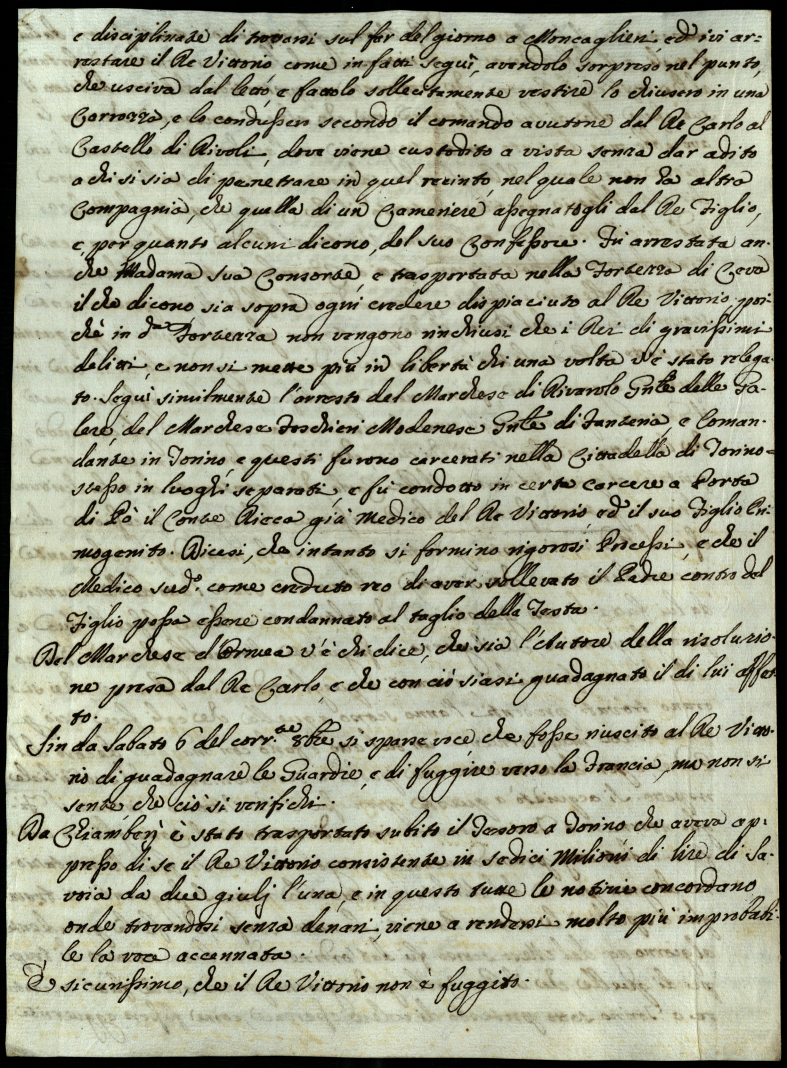 e disciplinate di trovarsi sul far del giorno a Moncaglieri, ed ivi ar=
restare il Re Vittorio come in fatti seguì, avendolo sorpreso nel punto,
che usciva dal letto, e fattolo sollecitamente vestire lo chiusero in una
Carrozza, e lo condussero secondo il comando avutone dal Re Carlo al
Castello di Rivoli, dove viene custodito a vista senza dar adito
a chi si sia di penetrare in quel recinto, nel quale non ha altra
Compagnia, che quella di un Cameriere assegnatogli dal Re Figlio,
e, per quanto alcuni dicono, del suo Confessore. Fù arrestata an-
che Madama sua Consorte, e trasportata nella Fortezza di Ceva
il che dicono sia sopra ogni credere dispiaciuto al Re Vittorio, poi-
chè in d.ª Fortezza non vengono rinchiusi che i Rei di gravissimi
delitti, e non si mette più in libertà chi una volta v'è stato relega-
to. Seguì similmente l'arresto del Marchese di Rivarolo Gnlẽ delle Ga-
lere, del Marchese Foschieri Modenese Gnlẽ di Fanteria, e Coman-
dante in Torino e questi furono carcerati nella Cittadella di Torino=
stesso in luoghi separati, e fù condotto in certe carcere a Porta
di Pò il Conte Ricca già Medico del Re Vittorio, ed il suo Figlio Pri
mogenito. Dicesi, che intanto si formino rigorosi Processi, e che il
Medico sud.º come creduto reo di aver sollevato il Padre contro del
Figlio possa essere condannato al taglio della Testa.
Del Marchese d'Ormea v'è chi dice, che sia l'Autore della risoluzio-
ne presa dal Re Carlo, e che con ciò siasi guadagnato il di lui affet-
to.
Sin da Sabato 6 del corr.te 8bre si sparse voce, che fosse riuscito al Re Vitto-
rio di guadagnare le Guardie, e di fuggire verso la Francia, ma non si
sente che ciò si verifichi.
Da Chiamberj è stato trasportato subito il Tesoro a Torino che aveva ap-
presso di se il Re Vittorio consistente in sedici Milioni di lire di Sa-
voia da due giulj l'una, e in questo tutte le notizie concordano
onde trovandosi senza denari, viene a rendersi molto più improbabi-
le la voce accennata.
È sicurissimo, che il Re Vittorio non è fuggito.